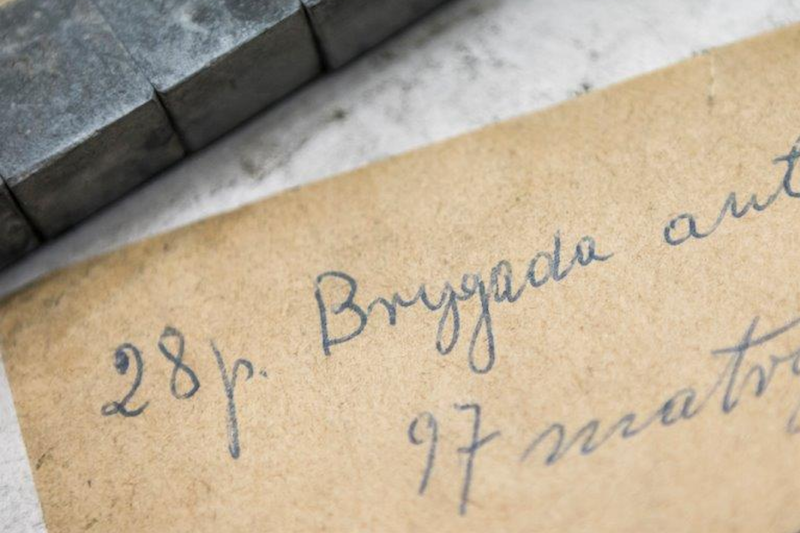 28 p. Brygada ant
97 matry